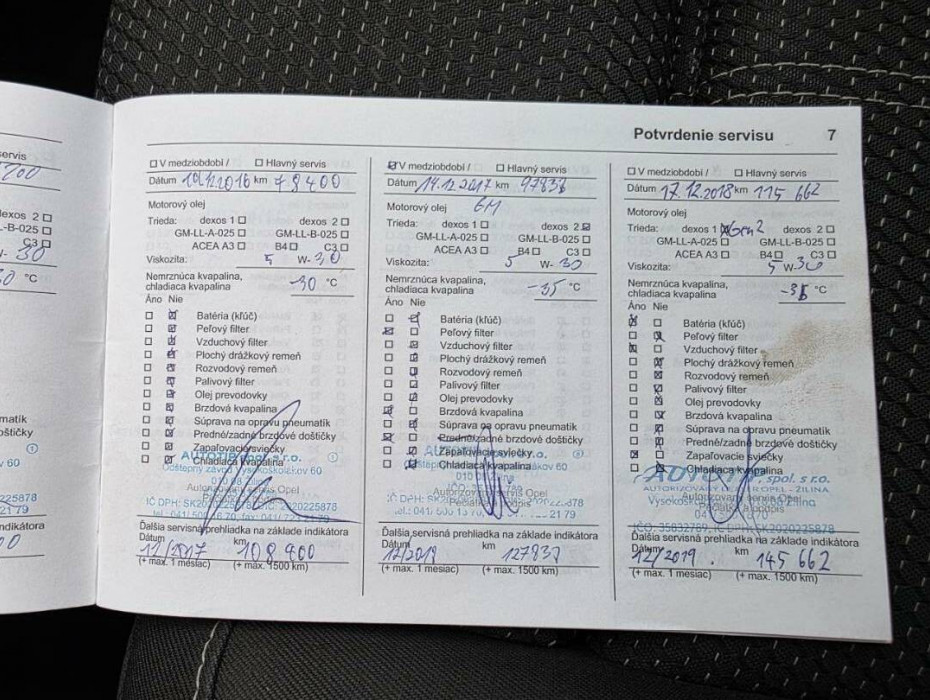 Potvrdenie servisu 7
ervis
dexos 2
L-B-025
C3
30
°C
matík
oštičky
v 60
225878
21 79
indikátora
V medziobdobí / Hlavný servis
Dátum 10.12.2016 km 78400
Motorový olej
Trieda: dexos 1 dexos 2
GM-LL-A-025 GM-LL-B-025
ACEA A3 B4 C3
Viskozita: 5 W-30
Nemrznúca kvapalina,
chladiaca kvapalina -30 °C
Áno Nie
Batéria (kľúč)
Peľový filter
Vzduchový filter
Plochý drážkový remeň
Rozvodový remeň
Palivový filter
Olej prevodovky
Brzdová kvapalina
Súprava na opravu pneumatík
Predné/zadné brzdové doštičky
Zapaľovacie sviečky
Chladiaca kvapalina
Autorizovaný servis Opel
Ďalšia servisná prehliadka na základe indikátora
Dátum km
12/2017 108 900
(+ max. 1 mesiac) (+ max. 1500 km)
V medziobdobí / Hlavný servis
Dátum 14.12.2017 km 97837
Motorový olej GM
Trieda: dexos 1 dexos 2
GM-LL-A-025 GM-LL-B-025
ACEA A3 B4 C3
Viskozita: 5 W-30
Nemrznúca kvapalina,
chladiaca kvapalina -35 °C
Áno Nie
Batéria (kľúč)
Peľový filter
Vzduchový filter
Plochý drážkový remeň
Rozvodový remeň
Palivový filter
Olej prevodovky
Brzdová kvapalina
Súprava na opravu pneumatík
Predné/zadné brzdové doštičky
Zapaľovacie sviečky
Chladiaca kvapalina
Autorizovaný servis Opel
Ďalšia servisná prehliadka na základe indikátora
Dátum km
127837
(+ max. 1 mesiac) (+ max. 1500 km)
V medziobdobí / Hlavný servis
Dátum 17.12.2018 km 115 662
Motorový olej
Trieda: dexos 1 Gen2 dexos 2
GM-LL-A-025 GM-LL-B-025
ACEA A3 B4 C3
Viskozita: 5 W-30
Nemrznúca kvapalina,
chladiaca kvapalina °C
Áno Nie
Batéria (kľúč)
Peľový filter
Vzduchový filter
Plochý drážkový remeň
Rozvodový remeň
Palivový filter
Olej prevodovky
Brzdová kvapalina
Súprava na opravu pneumatík
Predné/zadné brzdové doštičky
Zapaľovacie sviečky
Chladiaca kvapalina
spol. s r.o.
Autorizovaný servis Opel
Ďalšia servisná prehliadka na základe indikátora
Dátum km
12/2019. 145 662
(+ max. 1 mesiac) (+ max. 1500 km)